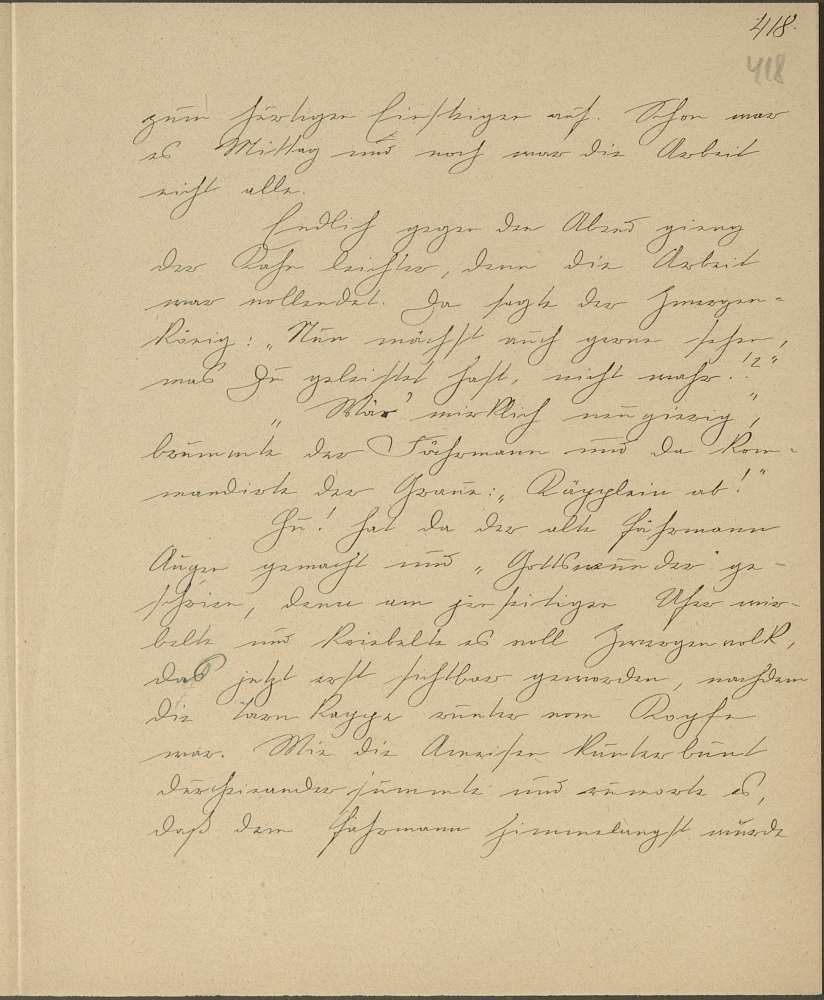 418.
418
zum hurtigen Einsteigen auf. Schon war
es Mittag und noch war die Arbeit
nicht alle.
Endlich gegen den Abend gieng
der Kahn leichter, denn die Arbeit
war vollendet. Da sagte der Zwergen-
könig: „Nun möchst auch gerne sehen,
was Du geleistet hast, nicht wahr!?"
„Wär' wirklich neugierig",
brummte der Fährmann und da kom-
mandirte der Graue: „Käpplein ab!"
Hu! hat da der alte Fährmann
Augen gemacht und „Gottswunder" ge-
schrien, denn am jenseitigen Ufer wir-
belte und kriebelte es voll Zwergenvolk,
das jetzt erst sichtbar geworden, nachdem
die Tarnkappe runter vom Kopfe
war. Wie die Ameisen kunterbunt
durcheinander summte und rumorte es,
daß dem Fährmann himmelangst wurde